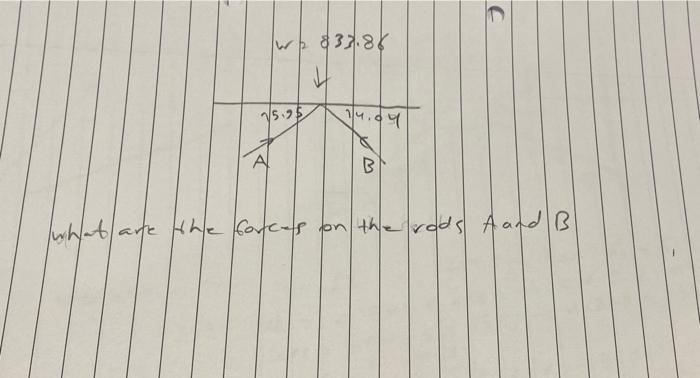 W = 833.86
75.95 74.04
A B
what are the forces on the rods A and B